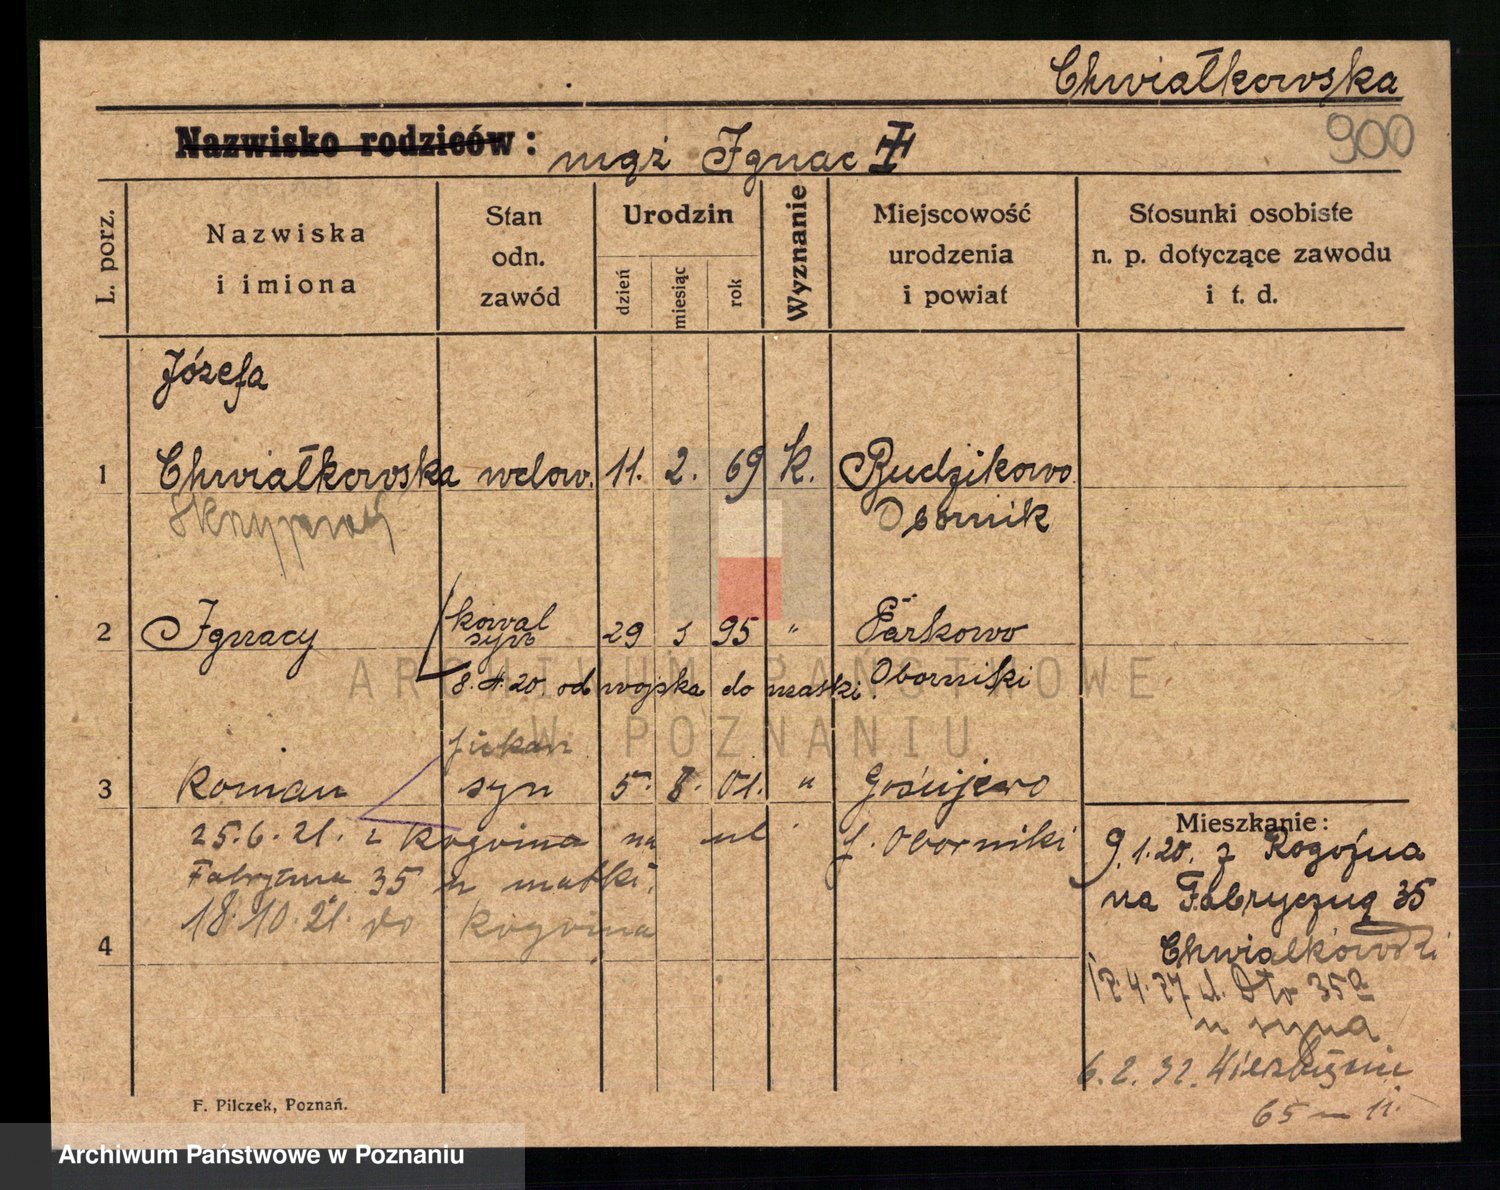 Chwiałkowska
900
Nazwisko rodziców: mąż Ignac II
L. porz.
Nazwiska i imiona
Stan odn. zawód
Urodzin
dzień
miesiąc
rok
Wyznanie
Miejscowość urodzenia i powiat
Stosunki osobiste n. p. dotyczące zawodu i t. d.
Józefa
1 Chwiałkowska wdow. 11. 2. 69 k. Budzikowo
Obornik
2 Ignacy kowal syn 29 95 " Parkowo
8. 4. 20 od wojska do matki. Oborniki
3 Roman syn 5. 8. 01. "
25. 6. 21. z Rogoźna na ul. Oborniki
35 u matki.
18. 10. 21. do Rogoźna
4
Mieszkanie:
9. 1. 20. z Rogoźna
na Fabryczną 35
6. 2. 32.
65 m 11.
F. Pilczek, Poznań.
ARCHIWUM PAŃSTWOWE
W POZNANIU
Archiwum Państwowe w Poznaniu